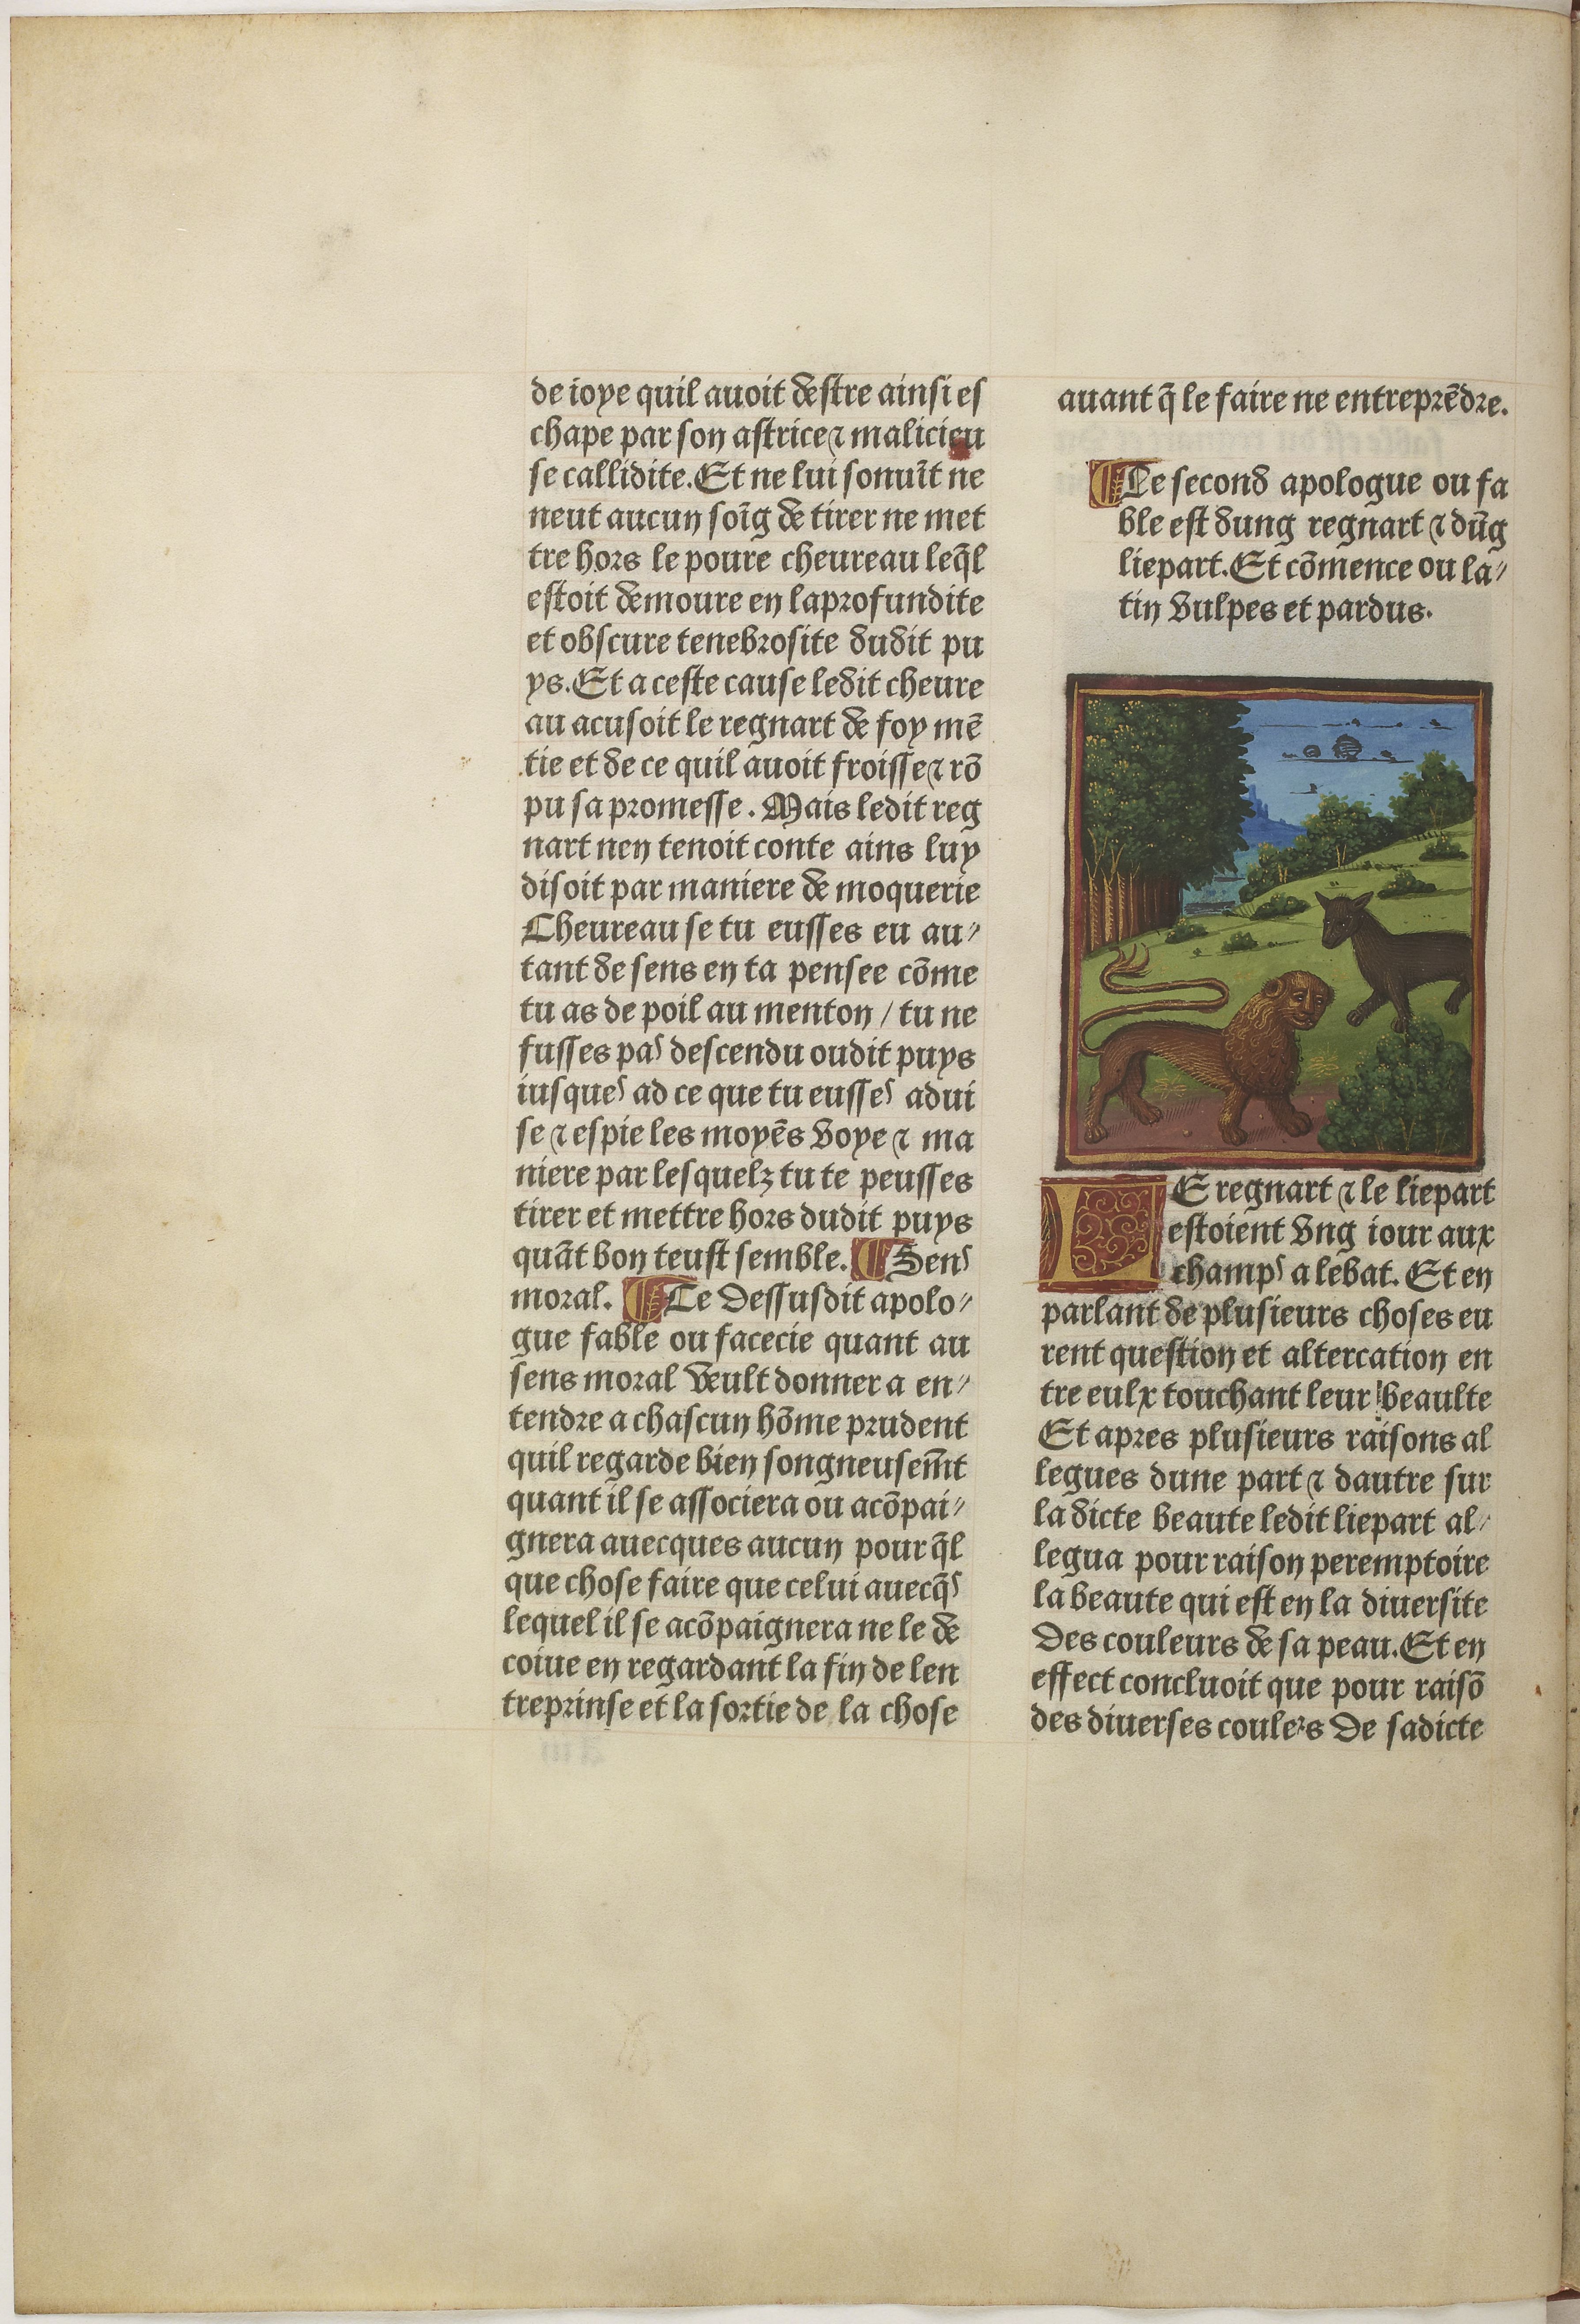 de ioye quil auoit destre ainsi es
chape par son astrice ⁊ malicieu
se callidite. Et ne lui souuīt ne
neut aucun soīg de tirer ne met
tre hors le poure cheureau leq̄l
estoit demoure en laprofundite
et obscure tenebrosite dudit pu
ys. Et a ceste cause ledit cheure
au acusoit le regnart de foy mē
tie et de ce quil auoit froisse ⁊ rō
pu sa promesse. Mais ledit reg
nart nen tenoit conte ains luy
disoit par maniere de moquerie
Cheureau se tu eusses eu au⸗
tant de sens en ta pensee cōme
tu as de poil au menton / tu ne
fusses pas descendu oudit puys
iusques ad ce que tu eusses adui
se ⁊ espie les moyēs voye ⁊ ma
niere par lesquelz tu te peusses
tirer et mettre hors dudit puys
quāt bon teust semble. ¶ Sens
moral. ¶ Le dessusdit apolo⸗
gue fable ou facecie quant au
sens moral veult donner a en⸗
tendre a chascun hōme prudent
quil regarde bien songneusem̄t
quant il se associera ou acōpai⸗
gnera auecques aucun pour q̄l
que chose faire que celui auecq̄s
lequel il se acōpaignera ne le de
coiue en regardant la fin de len
treprinse et la sortie de la chose
auant q̄ le faire ne entreprēdre.
¶ Le second apologue ou fa
ble est dung regnart ⁊ dūg
liepart. Et cōmence ou la⸗
tin vulpes et pardus.
LE regnart ⁊ le liepart
estoient vng iour aux
champs a lebat. Et en
parlant de plusieurs choses eu
rent question et altercation en
tre eulx touchant leur beaulte
Et apres plusieurs raisons al
legues dune part ⁊ dautre sur
la dicte beaute ledit liepart al⸗
legua pour raison peremptoire
la beaute qui est en la diuersite
des couleurs de sa peau. Et en
effect concluoit que pour raisō
des diuerses coulers de sadicte